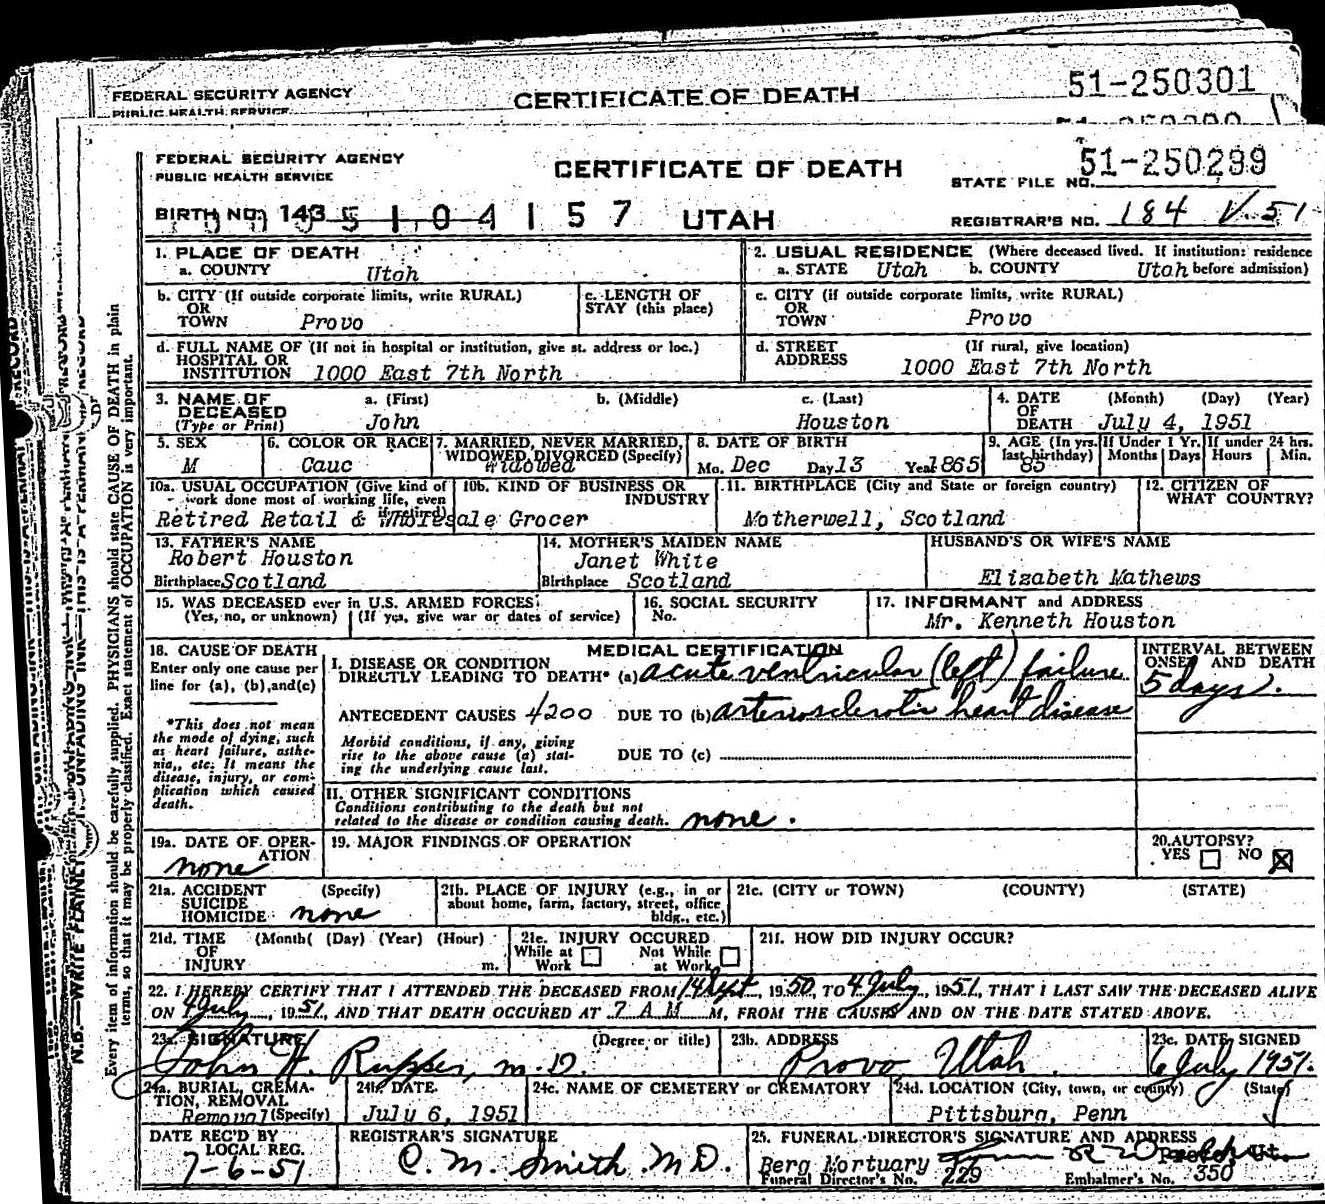 FEDERAL SECURITY AGENCY
PUBLIC HEALTH SERVICE
CERTIFICATE OF DEATH
51-250301
FEDERAL SECURITY AGENCY
PUBLIC HEALTH SERVICE
CERTIFICATE OF DEATH
STATE FILE NO. 51-250299
BIRTH NO. 143 5 1 0 4 1 5 7 UTAH
REGISTRAR'S NO. 184 V.51
1. PLACE OF DEATH
a. COUNTY Utah
2. USUAL RESIDENCE (Where deceased lived. If institution: residence
a. STATE Utah b. COUNTY Utah before admission)
b. CITY (If outside corporate limits, write RURAL)
OR
TOWN Provo
c. LENGTH OF
STAY (this place)
c. CITY (if outside corporate limits, write RURAL)
OR
TOWN Provo
d. FULL NAME OF (If not in hospital or institution, give st. address or loc.)
HOSPITAL OR
INSTITUTION 1000 East 7th North
d. STREET (If rural, give location)
ADDRESS 1000 East 7th North
3. NAME OF DECEASED (Type or Print)
a. (First) b. (Middle) c. (Last)
John Houston
4. DATE (Month) (Day) (Year)
OF
DEATH July 4, 1951
5. SEX
M
6. COLOR OR RACE
Cauc
7. MARRIED, NEVER MARRIED,
WIDOWED DIVORCED (Specify)
Widowed
8. DATE OF BIRTH
Mo. Dec Day 13 Year 1865
9. AGE (In yrs. last birthday)
85
If Under 1 Yr.
Months Days
If under 24 hrs.
Hours Min.
10a. USUAL OCCUPATION (Give kind of
work done most of working life, even
if retired)
10b. KIND OF BUSINESS OR
INDUSTRY
Retired Retail & Wholesale Grocer
11. BIRTHPLACE (City and State or foreign country)
Motherwell, Scotland
12. CITIZEN OF
WHAT COUNTRY?
13. FATHER'S NAME
Robert Houston
Birthplace Scotland
14. MOTHER'S MAIDEN NAME
Janet White
Birthplace Scotland
HUSBAND'S OR WIFE'S NAME
Elizabeth Mathews
15. WAS DECEASED ever in U.S. ARMED FORCES?
(Yes, no, or unknown) (If yes, give war or dates of service)
16. SOCIAL SECURITY
No.
17. INFORMANT and ADDRESS
Mr. Kenneth Houston
18. CAUSE OF DEATH
Enter only one cause per
line for (a), (b), and (c)
*This does not mean
the mode of dying, such
as heart failure, asthe-
nia, etc. It means the
disease, injury, or com-
plication which caused
death.
MEDICAL CERTIFICATION
I. DISEASE OR CONDITION
DIRECTLY LEADING TO DEATH* (a) acute ventricular (left) failure
ANTECEDENT CAUSES 4200 DUE TO (b) arteriosclerotic heart disease
Morbid conditions, if any, giving
rise to the above cause (a) stat-
ing the underlying cause last.
DUE TO (c)
INTERVAL BETWEEN
ONSET AND DEATH
5 days.
II. OTHER SIGNIFICANT CONDITIONS
Conditions contributing to the death but not
related to the disease or condition causing death. none.
19a. DATE OF OPER-
ATION
none
19. MAJOR FINDINGS OF OPERATION
20. AUTOPSY?
YES NO
21a. ACCIDENT (Specify)
SUICIDE
HOMICIDE none
21b. PLACE OF INJURY (e.g., in or
about home, farm, factory, street, office
bldg., etc.)
21c. (CITY or TOWN) (COUNTY) (STATE)
21d. TIME (Month( (Day) (Year) (Hour)
OF
INJURY m.
21e. INJURY OCCURED
While at Work Not While at Work
21f. HOW DID INJURY OCCUR?
22. I HEREBY CERTIFY THAT I ATTENDED THE DECEASED FROM 14 Sept, 1950, TO 4 July, 1951, THAT I LAST SAW THE DECEASED ALIVE
ON 4 July, 1951, AND THAT DEATH OCCURED AT 7 A M M, FROM THE CAUSES AND ON THE DATE STATED ABOVE.
23a. SIGNATURE (Degree or title)
John H. Rupper, M.D.
23b. ADDRESS
Provo Utah
23c. DATE SIGNED
6 July 1951.
24a. BURIAL, CREMA-
TION, REMOVAL
Removal (Specify)
24b. DATE
July 6, 1951
24c. NAME OF CEMETERY or CREMATORY
24d. LOCATION (City, town, or county) (State)
Pittsburg, Penn
DATE REC'D BY
LOCAL REG.
7-6-51
REGISTRAR'S SIGNATURE
C. M. Smith M.D.
25. FUNERAL DIRECTOR'S SIGNATURE AND ADDRESS
Berg Mortuary
Funeral Director's No. 229 Embalmer's No. 350
N.B.—WRITE PLAINLY
Every item of information should be carefully supplied. PHYSICIANS should state CAUSE OF DEATH in plain
terms, so that it may be properly classified. Exact statement of OCCUPATION is very important.